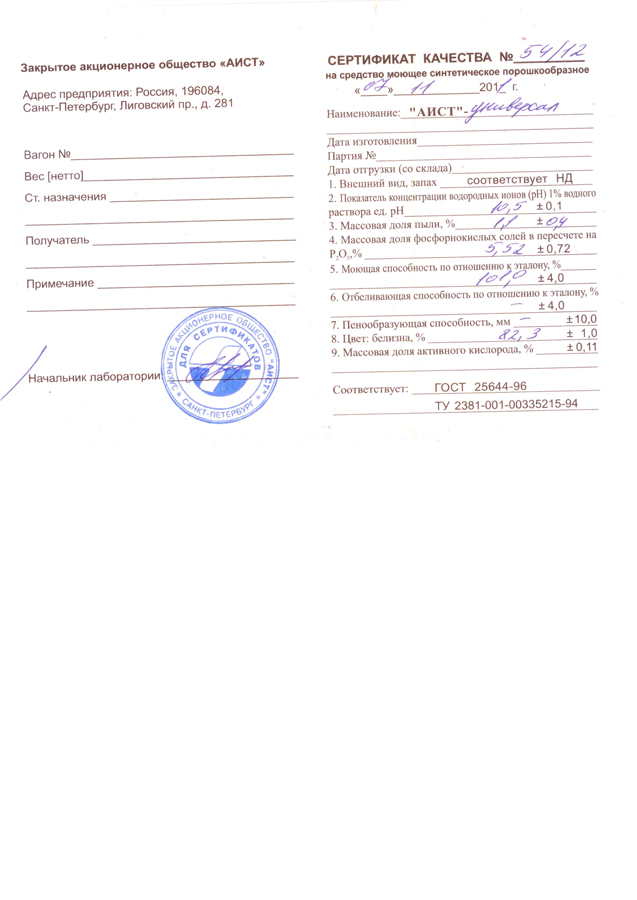 Закрытое акционерное общество «АИСТ»
Адрес предприятия: Россия, 196084,
Санкт-Петербург, Лиговский пр., д. 281
Вагон №
Вес [нетто]
Ст. назначения
Получатель
Примечание
Начальник лаборатории
ЗАКРЫТОЕ АКЦИОНЕРНОЕ ОБЩЕСТВО "АИСТ"
САНКТ-ПЕТЕРБУРГ
ДЛЯ СЕРТИФИКАТОВ
СЕРТИФИКАТ КАЧЕСТВА № 54/12
на средство моющее синтетическое порошкообразное
«07» 11 2011 г.
Наименование: "АИСТ"-универсал
Дата изготовления
Партия №
Дата отгрузки (со склада)
1. Внешний вид, запах соответствует НД
2. Показатель концентрации водородных ионов (рН) 1% водного
раствора ед. рН 10,5 ± 0,1
3. Массовая доля пыли, % 1,1 ± 0,4
4. Массовая доля фосфорнокислых солей в пересчете на
P₂O₅,% 5,52 ± 0,72
5. Моющая способность по отношению к эталону, %
101,0 ± 4,0
6. Отбеливающая способность по отношению к эталону, %
– ± 4,0
7. Пенообразующая способность, мм – ± 10,0
8. Цвет: белизна, % 82,3 ± 1,0
9. Массовая доля активного кислорода, % ± 0,11
Соответствует: ГОСТ 25644-96
ТУ 2381-001-00335215-94